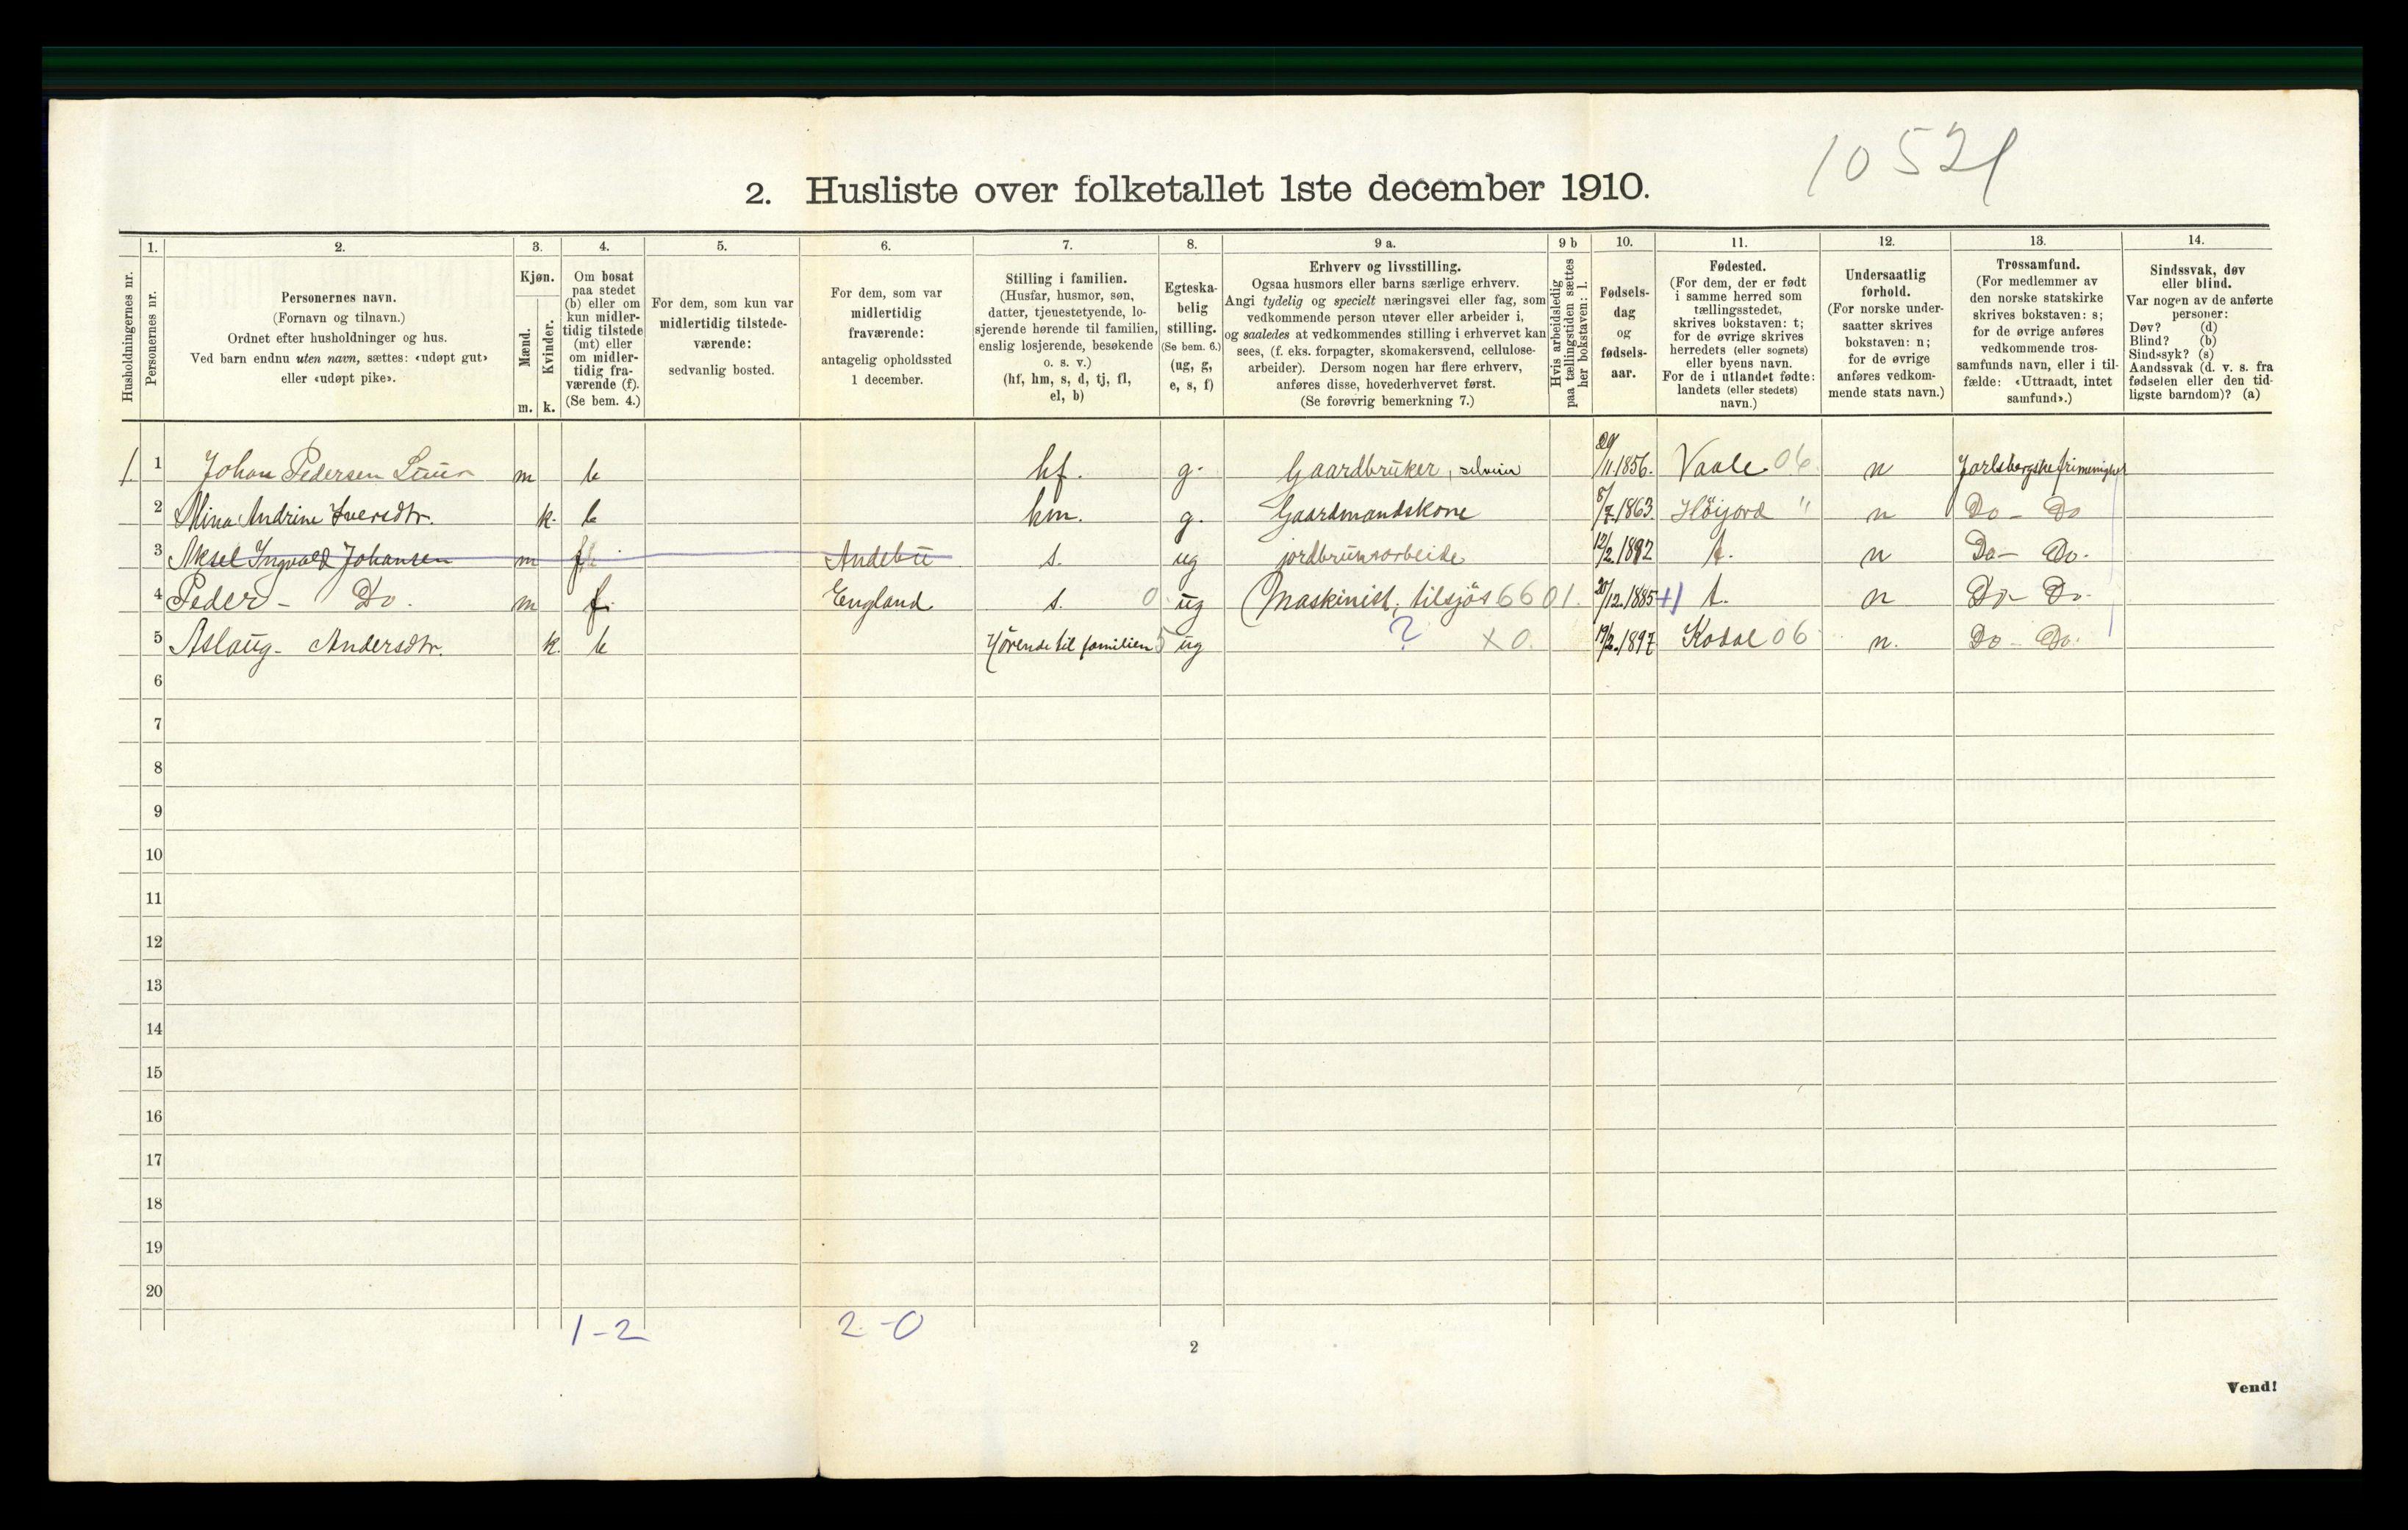 10521
2. Husliste over folketallet 1ste december 1910.
Husholdningernes nr.
1.
Personernes nr.
2.
Personernes navn.
(Fornavn og tilnavn.)
Ordnet efter husholdninger og hus.
Ved barn endnu uten navn, sættes: «udøpt gut»
eller «udøpt pike».
3.
Kjøn.
Mænd.
Kvinder.
m. k.
4.
Om bosat
paa stedet
(b) eller om
kun midler-
tidig tilstede
(mt) eller
om midler-
tidig fra-
værende (f).
(Se bem. 4.)
5.
For dem, som kun var
midlertidig tilstede-
værende:
sedvanlig bosted.
6.
For dem, som var
midlertidig
fraværende:
antagelig opholdssted
1 december.
7.
Stilling i familien.
(Husfar, husmor, søn,
datter, tjenestetyende, lo-
sjerende hørende til familien,
enslig losjerende, besøkende
o. s. v.)
(hf, hm, s, d, tj, fl,
el, b)
8.
Egteska-
belig
stilling.
(Se bem. 6.)
(ug, g,
e, s, f)
9 a.
Erhverv og livsstilling.
Ogsaa husmors eller barns særlige erhverv.
Angi tydelig og specielt næringsvei eller fag, som
vedkommende person utøver eller arbeider i,
og saaledes at vedkommendes stilling i erhvervet kan
sees, (f. eks. forpagter, skomakersvend, cellulose-
arbeider). Dersom nogen har flere erhverv,
anføres disse, hovederhvervet først.
(Se forøvrig bemerkning 7.)
9 b
Hvis arbeidsledig
paa tællingstiden sættes
her bokstaven: l.
10.
Fødsels-
dag
og
fødsels-
aar.
11.
Fødested.
(For dem, der er født
i samme herred som
tællingsstedet,
skrives bokstaven: t;
for de øvrige skrives
herredets (eller sognets)
eller byens navn.
For de i utlandet fødte:
landets (eller stedets)
navn.)
12.
Undersaatlig
forhold.
(For norske under-
saatter skrives
bokstaven: n;
for de øvrige
anføres vedkom-
mende stats navn.)
13.
Trossamfund.
(For medlemmer av
den norske statskirke
skrives bokstaven: s;
for de øvrige anføres
vedkommende tros-
samfunds navn, eller i til-
fælde: «Uttraadt, intet
samfund».)
14.
Sindssvak, døv
eller blind.
Var nogen av de anførte
personer:
Døv? (d)
Blind? (b)
Sindssyk? (s)
Aandssvak (d. v. s. fra
fødselen eller den tid-
ligste barndom)? (a)
1. 1 Johan Pedersen m b hf. g. Gaardbruker, selveier 29/11.1856. Vaale 06 n Jarlsbergske frimenighet
2 Mina Andrine Iversdtr. k. b hm. g. Gaardmandskone 8/7.1863 Höijord " n Do - Do
3 Aksel Ingvald Johansen m f Andebu s. ug jordbruksarbeide 12/2.1892 t. n Do - Do.
4 Peder - Do. m f. England s. 0 ug Maskinist, tilsjös 6601. 20/12.1885 +) t. n Do - Do.
5 Aslaug - Andersdtr. k. b Hörende til familien 5 ug ? x 0. 19/2.1897 Kodal 06 n. Do - Do.
6
7
8
9
10
11
12
13
14
15
16
17
18
19
20
1-2 2-0
2
Vend!